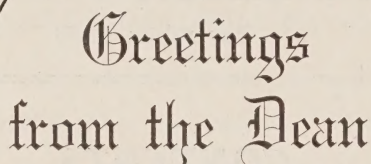 Greetings
from the Dean